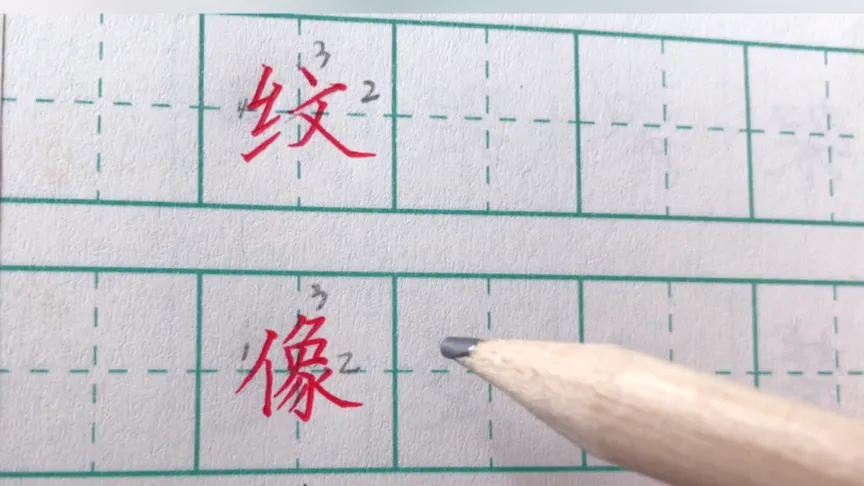 3
1 纹 2
3
1 像 2